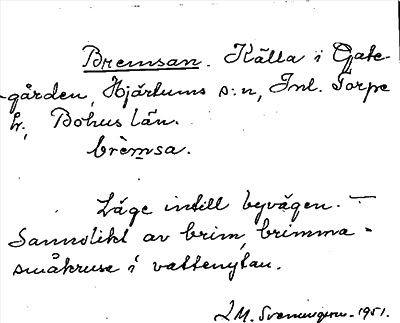 Bremsan. Källa i Gate-
gården, Hjärtums s:n, Inl. Torpe
h., Bohus län.
brèmsa.
Läge intill byvägen. —
Sannolikt av brim, brimma =
småkruse i vattenytan.
1951.